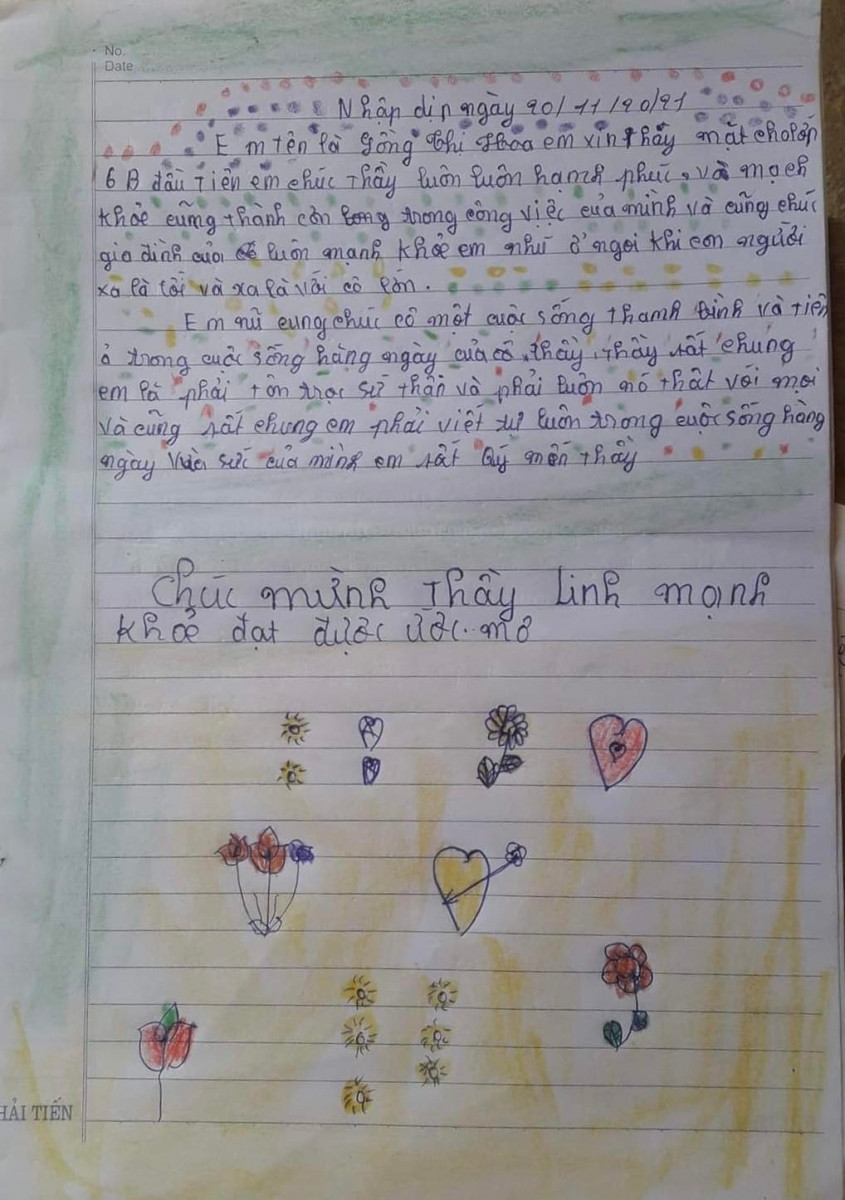 No.
Date
Nhập dịp ngày 20/11/20/21
Em tên là Sồng thị Hoa em xin thầy mặt cho lớp
6B đầu tiên em chúc thầy luôn luôn hạnh phúc, và mạch
khỏe cũng thành côn trong công việc của mình và cũng chúc
gia đình của cô luôn mạnh khỏe em như ở ngoi khi con người
xa là tôi và xa là với cô lớn.
Em nữ cung chúc cô một cuộc sống thanh bình và tiến
ở trong cuộc sống hàng ngày của cô, thầy, thầy rất chung
em là phải tôn trọc sự thận và phải luôn nó thật với mọi
và cũng rất chung em phải viết tự luôn trong cuộc sống hàng
ngày của mình em rất Qúy mến thầy
Chúc mừnh Thầy Linh mạnh
khỏe đạt được ước mơ
HẢI TIẾN